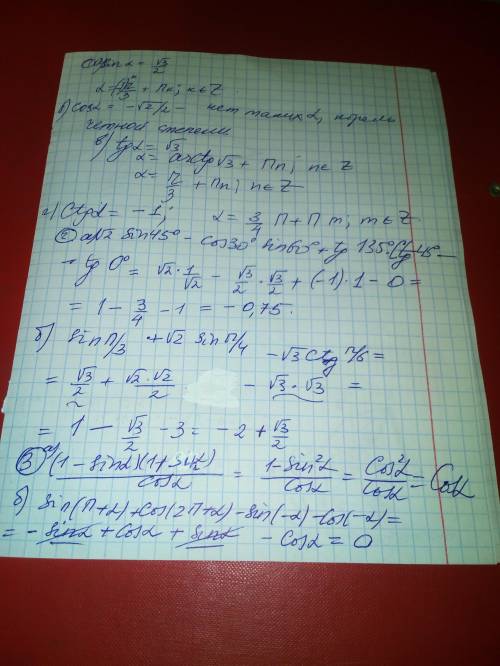 а) sin α = √3/2
α = π/3 + πn; n∈Z
б) cos α = -√2/2 - нет таких α, корень
четной степени
в) tg α = √3
α = arctg √3 + πn; n∈Z
α = π/3 + πn; n∈Z
г) Ctg α = -1; α = 3/4 π + πm, m∈Z
② а) √2 sin 45° - cos 30° sin 60° + tg 135° · Ctg 45° -
- tg 0° = √2 · 1/√2 - √3/2 · √3/2 + (-1) · 1 - 0 =
= 1 - 3/4 - 1 = -0,75.
б) sin π/3 + √2 sin π/4 - √3 Ctg π/6 =
= √3/2 + √2·√2/2 - √3 · √3 =
= 1 - √3/2 - 3 = -2 + √3/2
③ а) (1 - sin α)(1 + sin α)/cos α = 1 - sin² α/cos α = cos² α/cos α = cos α
б) sin(π + α) + cos(2π + α) - sin(-α) - cos(-α) =
= - sin α + cos α + sin α - cos α = 0